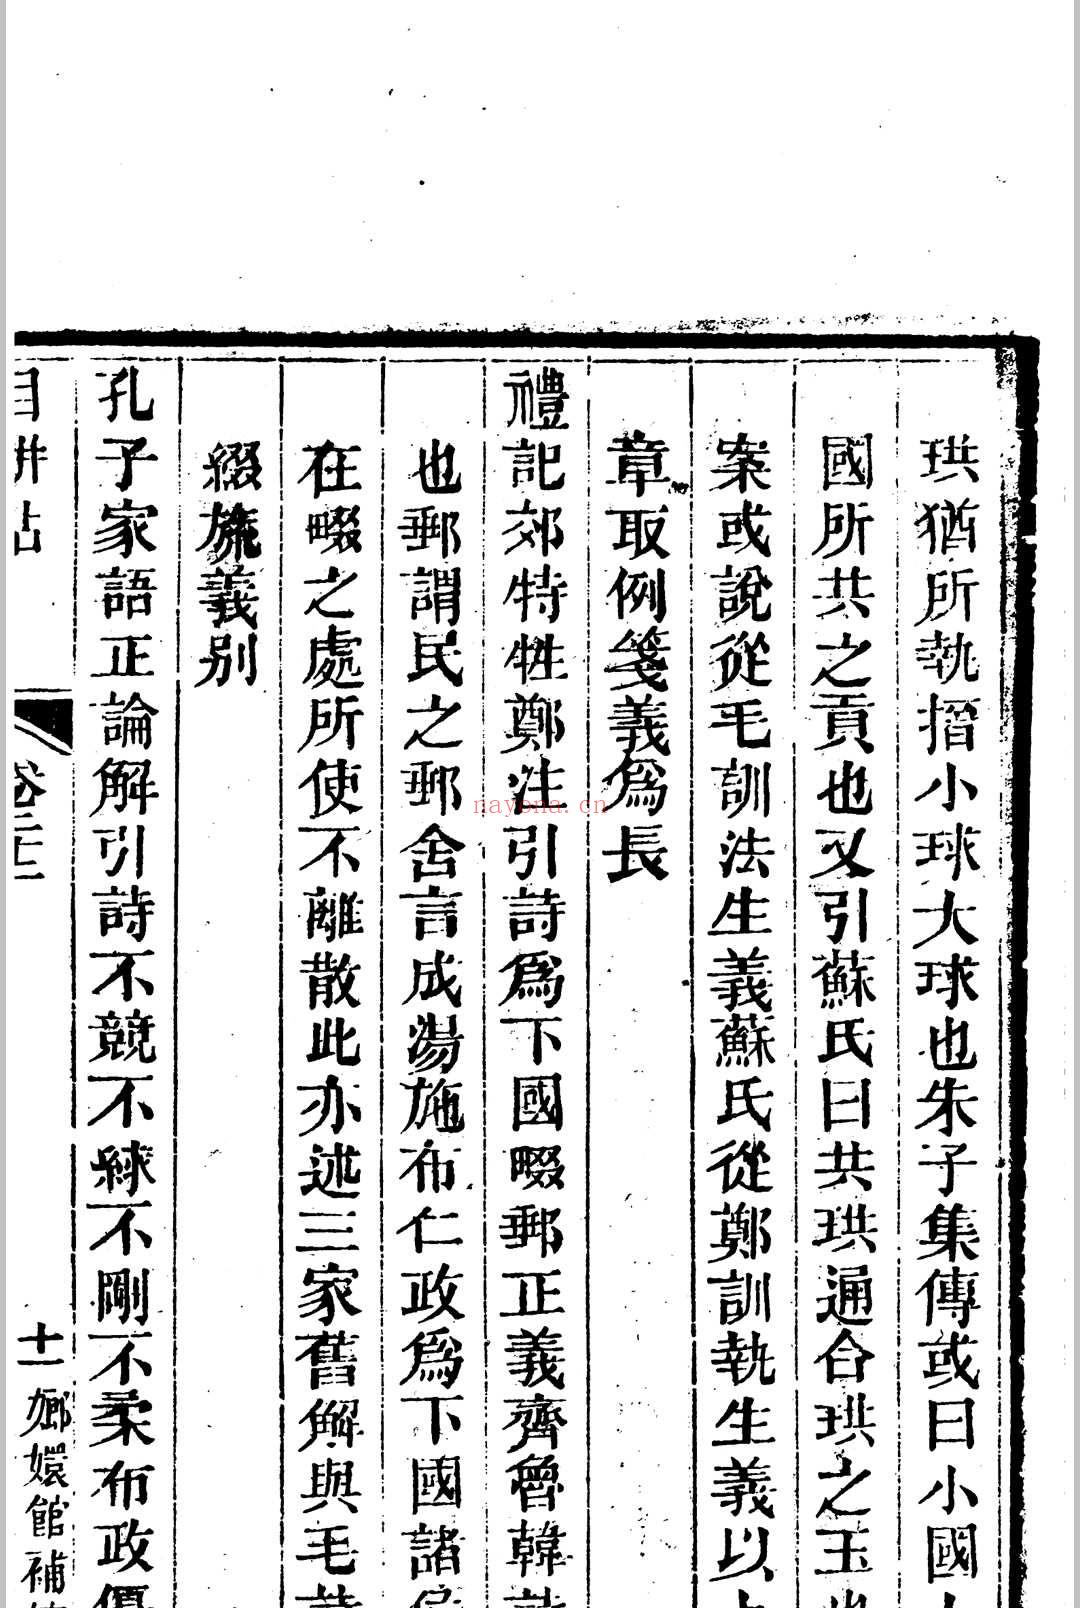 珙猶所執搢小球大球也朱子集傳或曰小國
國所共之貢也又引蘇氏曰共珙通合珙之玉也
案或說從毛訓法生義蘇氏從鄭訓執生義以
章取例箋義爲長
禮記郊特牲鄭注引詩爲下國畷郵正義齊魯韓詩
也郵謂民之郵舍言成湯施布仁政爲下國諸侯
在畷之處所使不離散此亦述三家舊解與毛詩
綴旒義別
孔子家語正論解引詩不競不絿不剛不柔布政優
十一
嫏嬛館補
nayona.cn